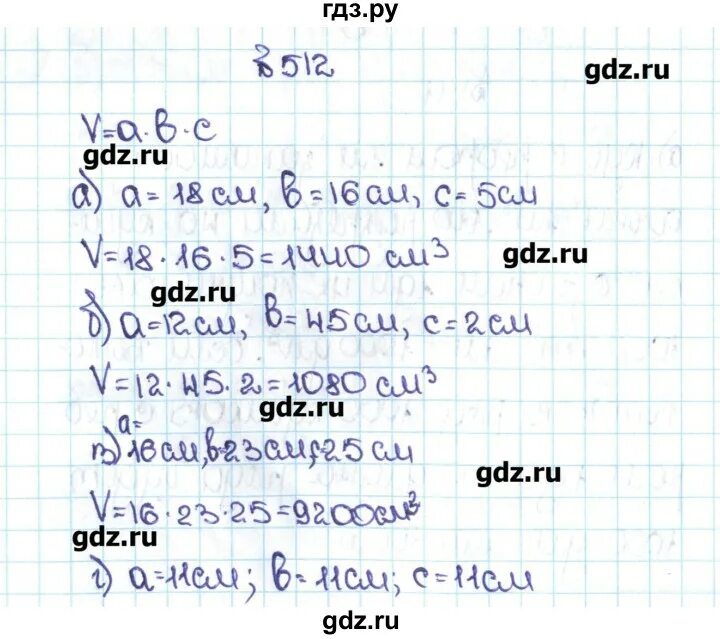 гдз.ру
№ 512
gdz.ru
V=a·b·c
gdz.ru
а) a= 18 см, b=16 см, c= 5 см
V=18·16·5=1440 см³
gdz.ru
gdz.ru
б) a=12 см, b=45 см, c=2 см
V=12·45·2=1080 см³
gdz.ru
a=
в) 16 см, b=23 см, c=25 см
gdz.ru
V=16·23·25=9200 см³
gdz.ru
г) a=11 см; b=11 см; c=11 см
gdz.ru